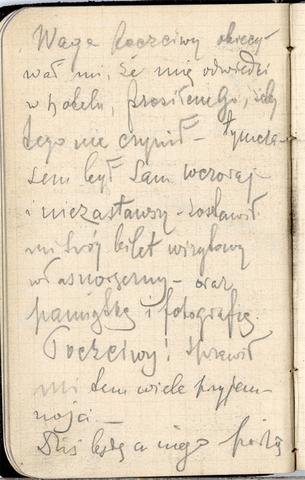 Waga poczciwy obiecy-
wał mi, że mię odwiedzi
w hotelu, prosiłem Go, żeby
tego nie czynił - tymcza-
sem był sam wczoraj
i niezastawszy - zostawił
mi swój bilet wizytowy
własnoręczny - oraz
pamiątkę i fotografię.
Poczciwy! Sprawił
mi tem wiele przyjem-
ności -
Dziś będę u niego